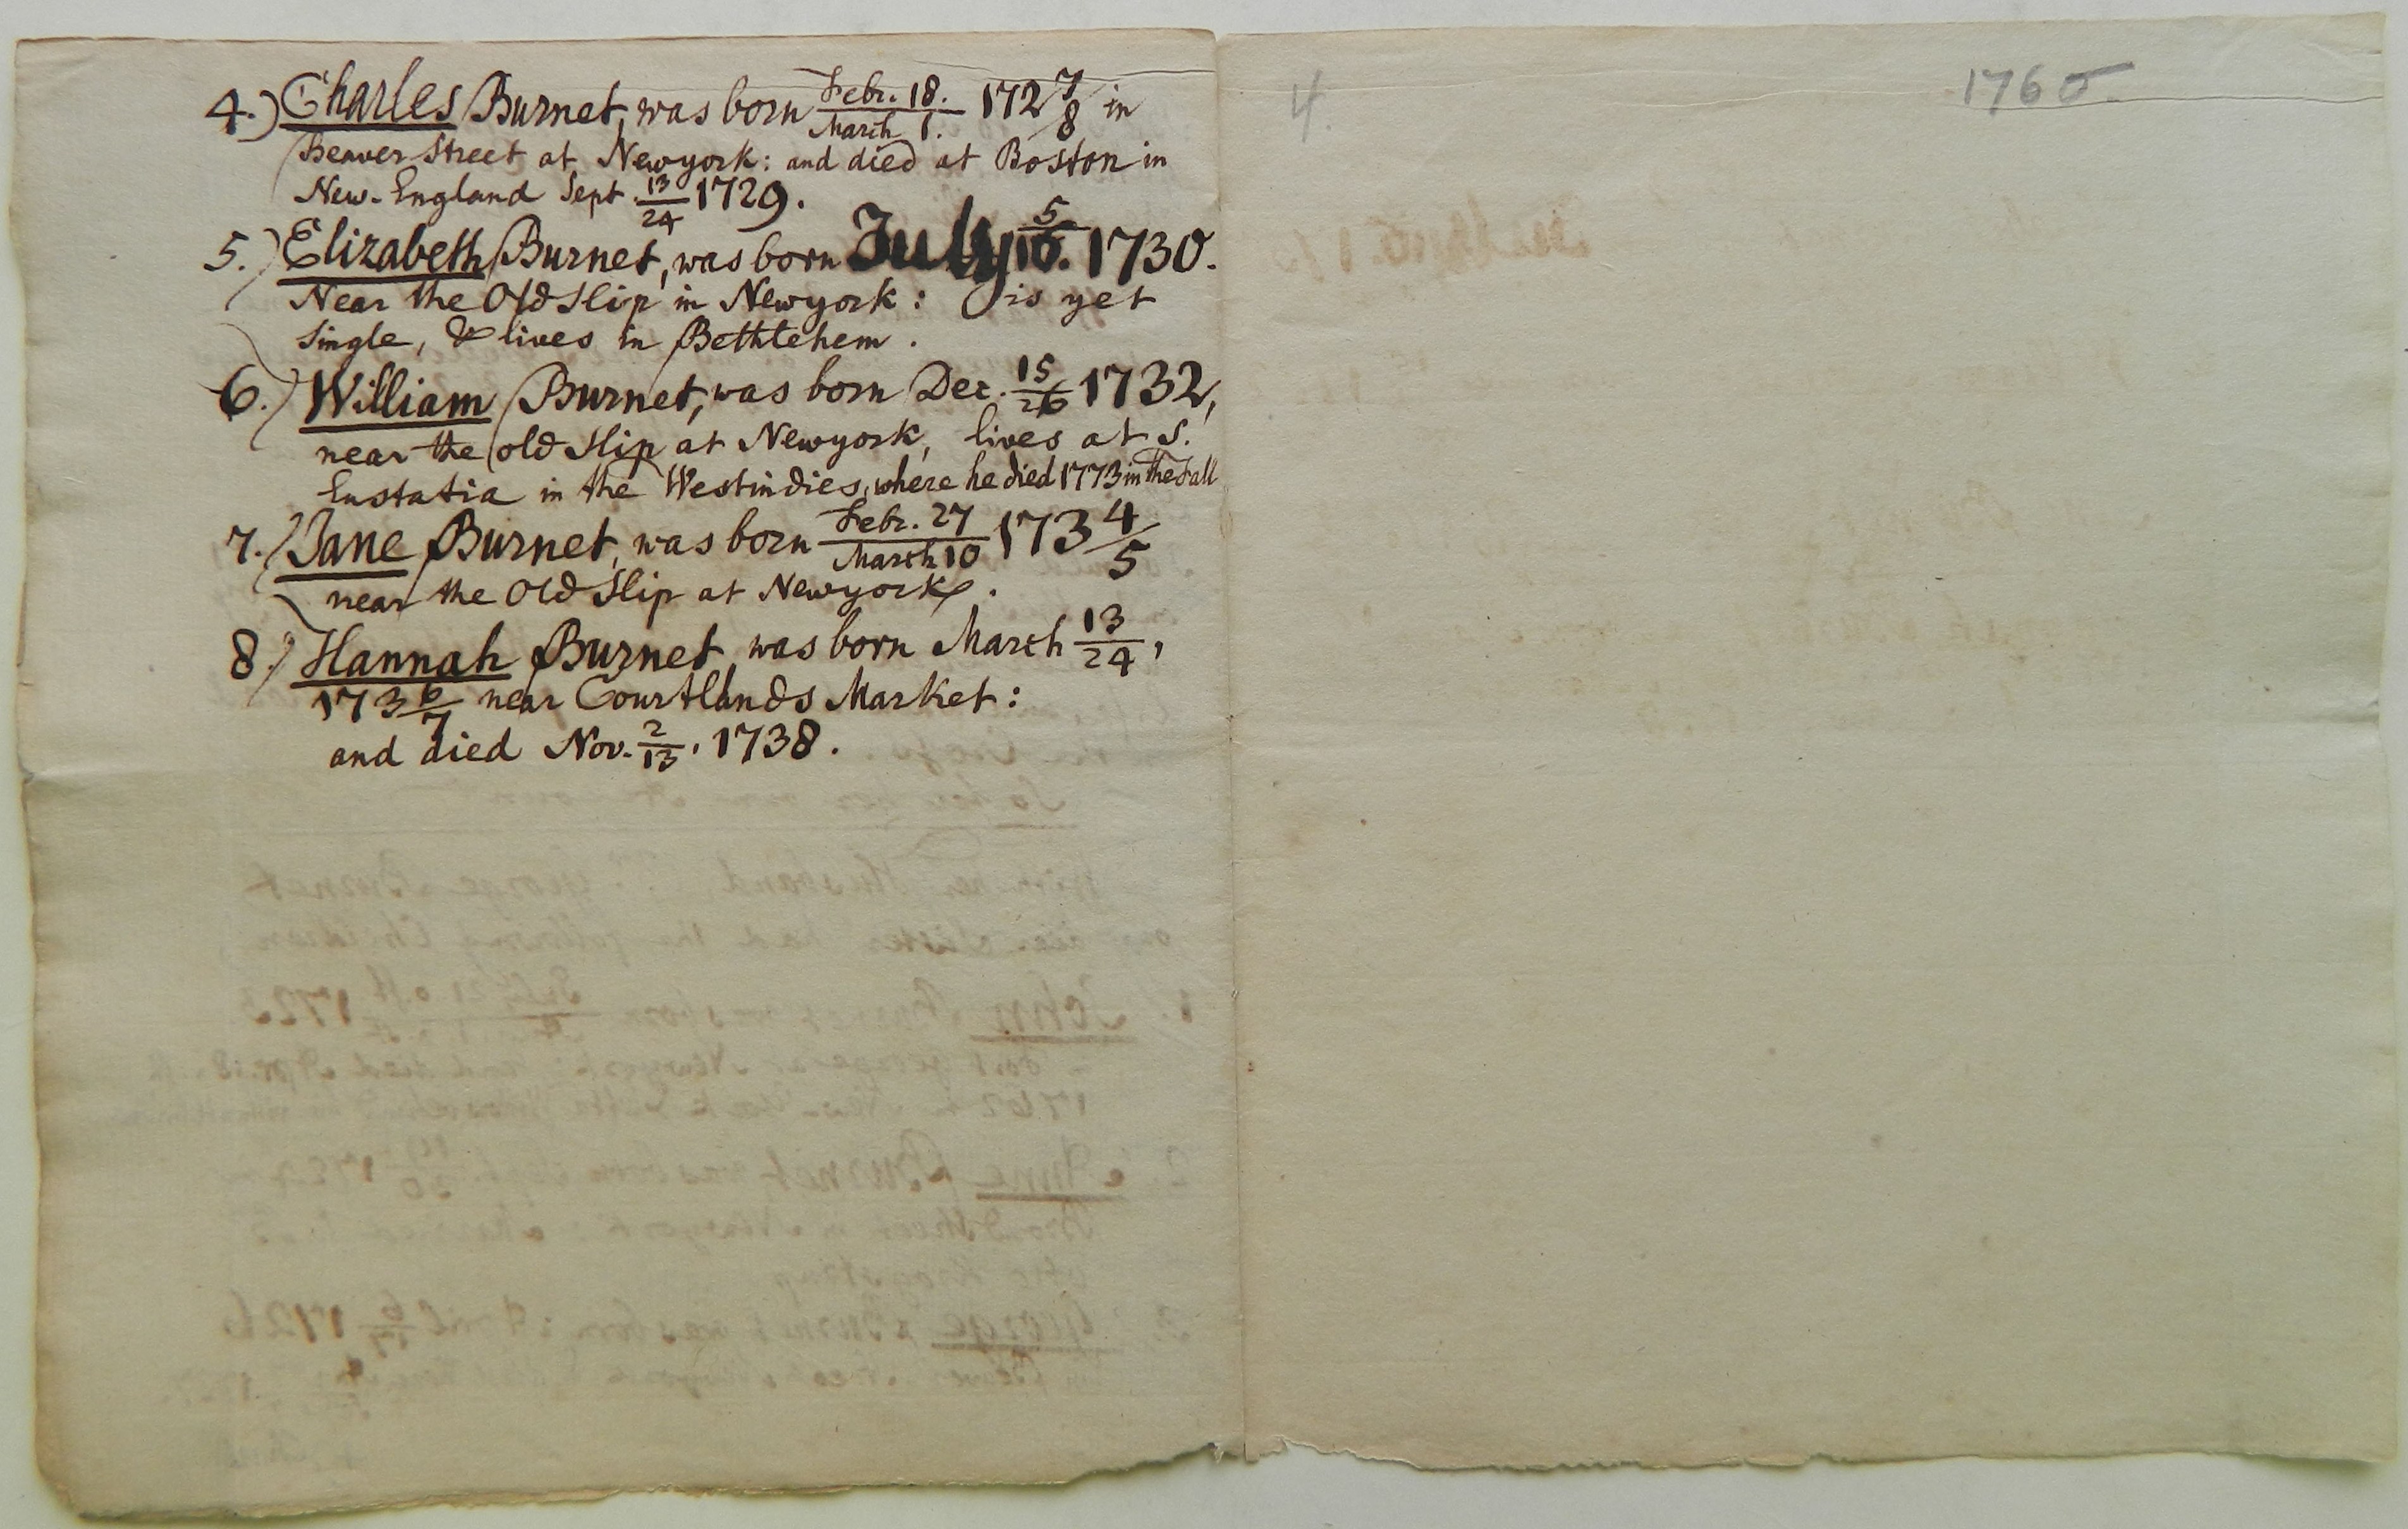 4.) Charles Burnet, was born Febr. 18./March 1. 172 7/8 in
Beaver Street at Newyork: and died at Boston in
New-England Sept. 13/24 1729.
5.) Elizabeth Burnet, was born July 5/16. 1730.
Near the Old Slip in Newyork: is yet
single, & lives in Bethlehem.
6.) William Burnet, was born Dec. 15/26 1732,
near the old Slip at Newyork, lives at S.
Eustatia in the Westindies, where he died 1773 in the Fall
7.) Jane Burnet, was born Febr. 27/March 10 173 4/5
near the Old Slip at Newyork.
8.) Hannah Burnet, was born March 13/24,
173 6/7 near Courtlands Market:
and died Nov. 2/13, 1738.
4.
1760